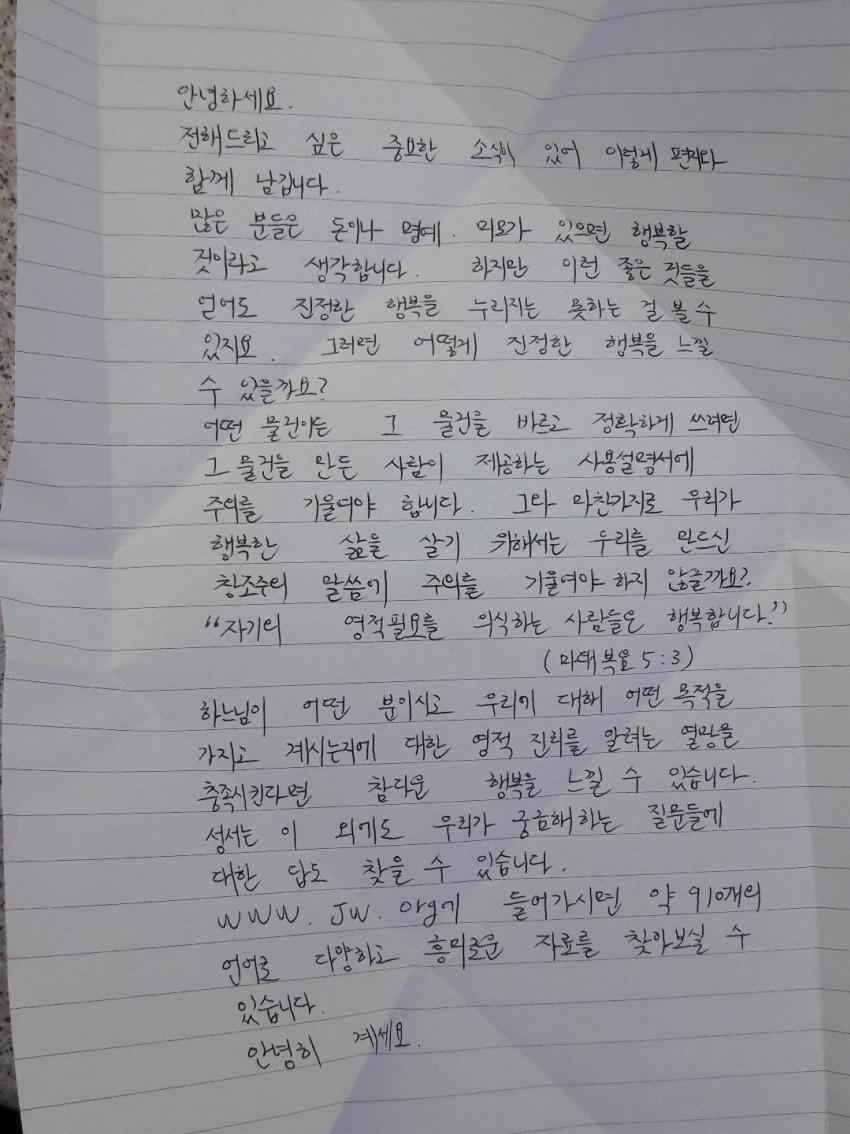 안녕하세요.
전해드리고 싶은 중요한 소식이 있어 이렇게 편지와
함께 남깁니다.
많은 분들은 돈이나 명예. 외모가 있으면 행복할
것이라고 생각합니다. 하지만 이런 좋은 것들을
얻어도 진정한 행복을 누리지는 못하는 걸 볼 수
있지요. 그러면 어떻게 진정한 행복을 느낄
수 있을까요?
어떤 물건이든 그 물건을 바르고 정확하게 쓰려면
그 물건을 만든 사람이 제공하는 사용설명서에
주의를 기울여야 합니다. 그와 마찬가지로 우리가
행복한 삶을 살기 위해서는 우리를 만드신
창조주의 말씀에 주의를 기울여야 하지 않을까요?
"자기의 영적필요를 의식하는 사람들은 행복합니다."
(마태복음 5:3)
하느님이 어떤 분이시고 우리에 대해 어떤 목적을
가지고 계시는지에 대한 영적 진리를 알려는 열망을
충족시킨다면 참다운 행복을 느낄 수 있습니다.
성서는 이 외에도 우리가 궁금해하는 질문들에
대한 답도 찾을 수 있습니다.
www.jw.org에 들어가시면 약 910개의
언어로 다양하고 흥미로운 자료를 찾아보실 수
있습니다.
안녕히 계세요.